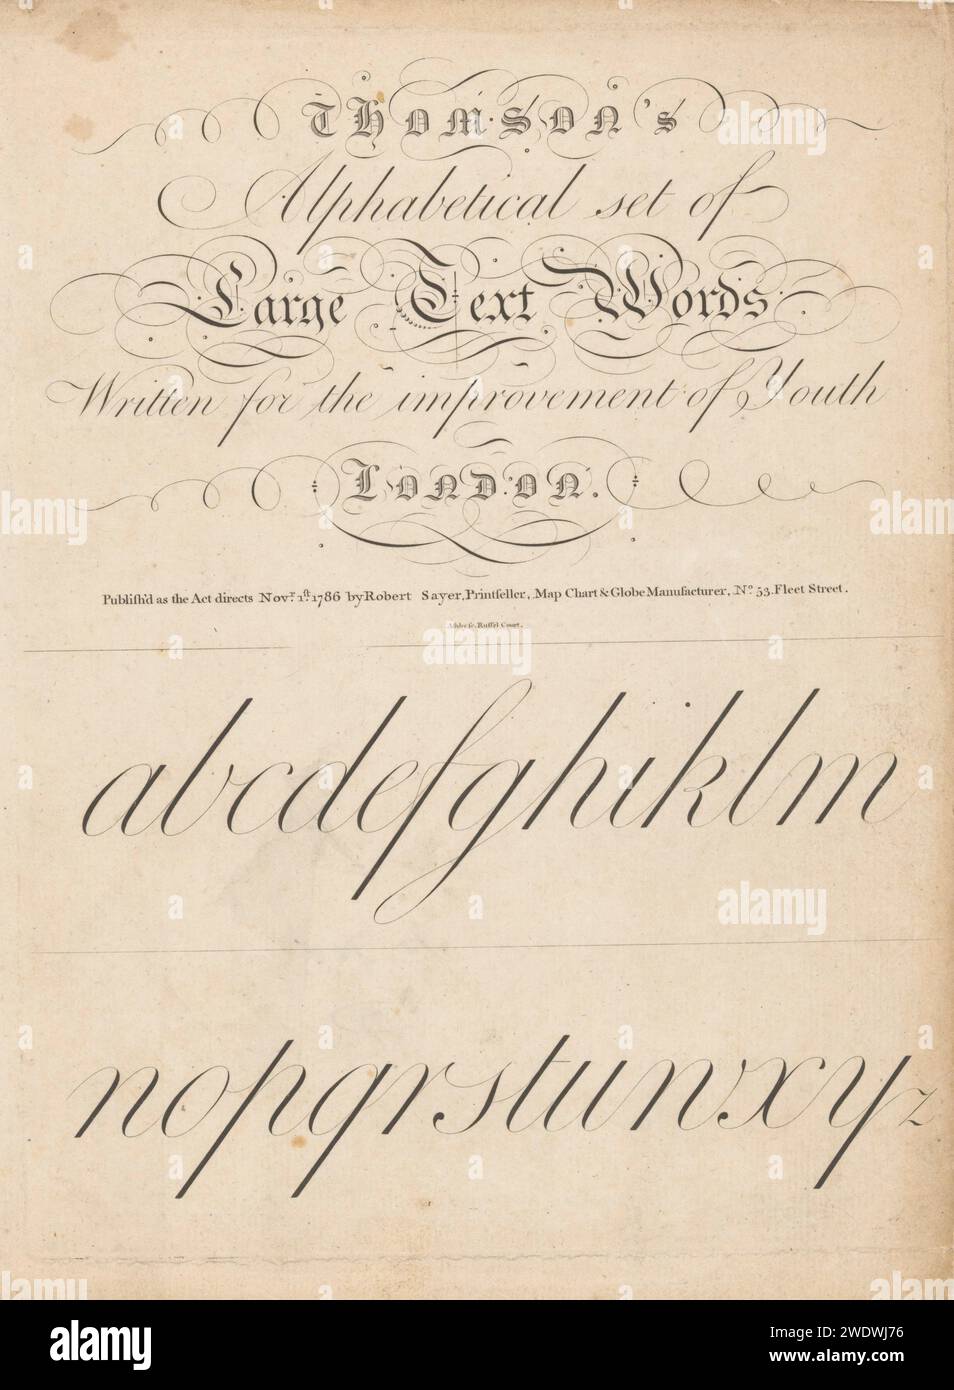 Thomson's
Alphabetical set of
Large Text Words
Written for the improvement of Youth
London.
Publiſh'd as the Act directs Novr. 1ſt. 1786 by Robert Sayer, Printſeller, Map Chart & Globe Manufacturer, No. 53. Fleet Street.
Ruſſel Court.
abcdefghiklm
nopqrstuvwxyz
alamy
Image ID: 2WDWJ76
www.alamy.com